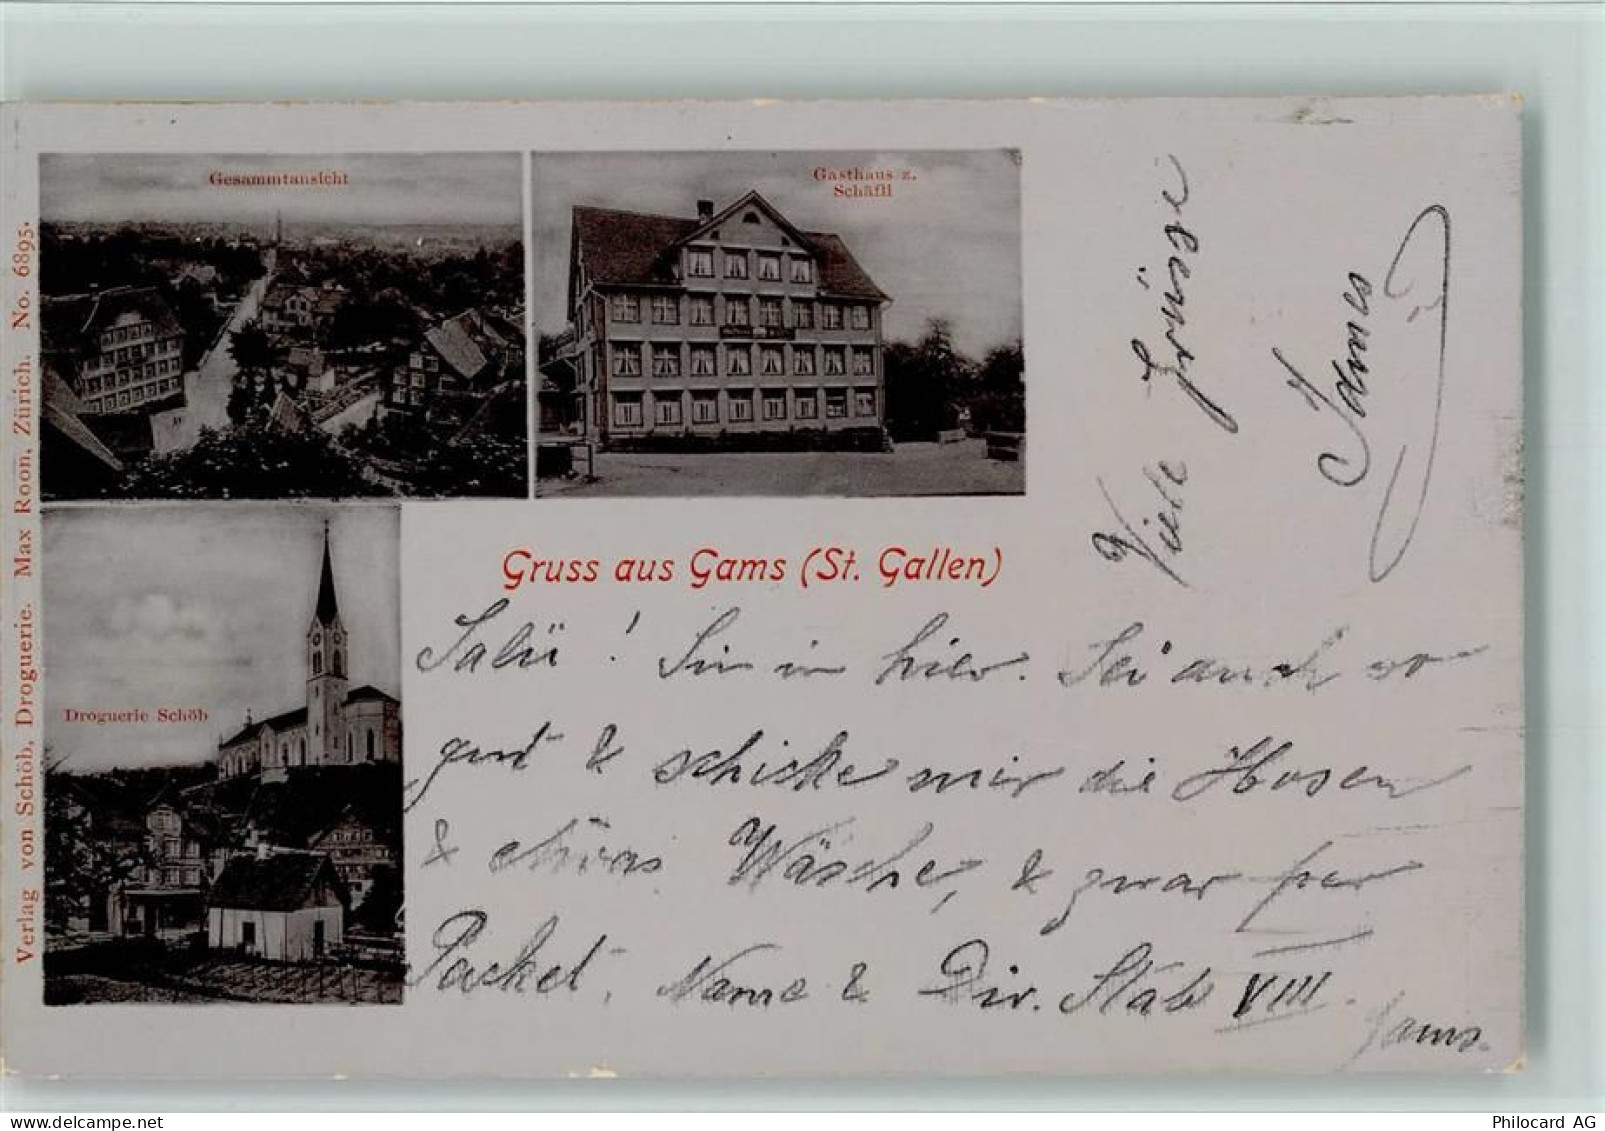 Gesammtansicht
Gasthaus z.
Schäfli
Droguerie Schöb
Verlag von Schöb, Droguerie. Max Roon, Zürich. No. 6895.
Gruss aus Gams (St. Gallen)
Salü! Bin in hier. Sei auch so
gut & schicke mir die Hosen
& etwas Wäsche, & zwar per
Packet, Name & Div. Stab VIII.
Gams.
Viele Grüsse
James
Philocard AG